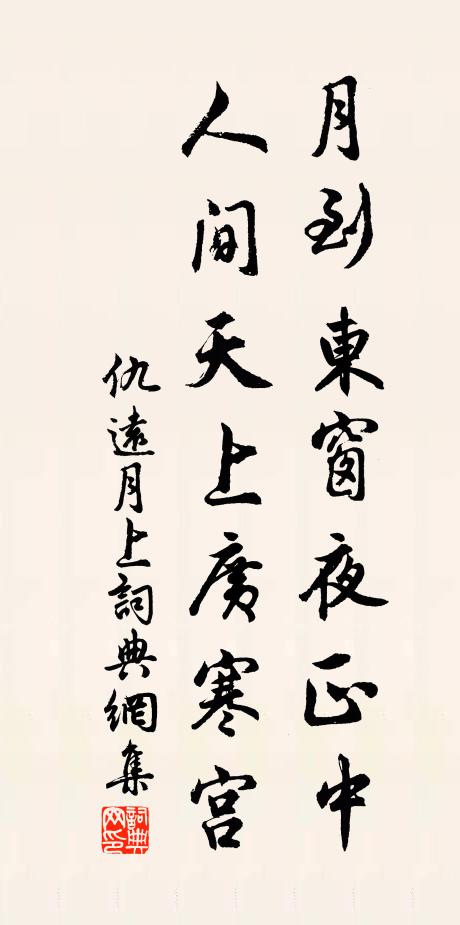 月到東窗夜正中
人间天上廣寒宮
仇遠月上詞典網集
詞典网印